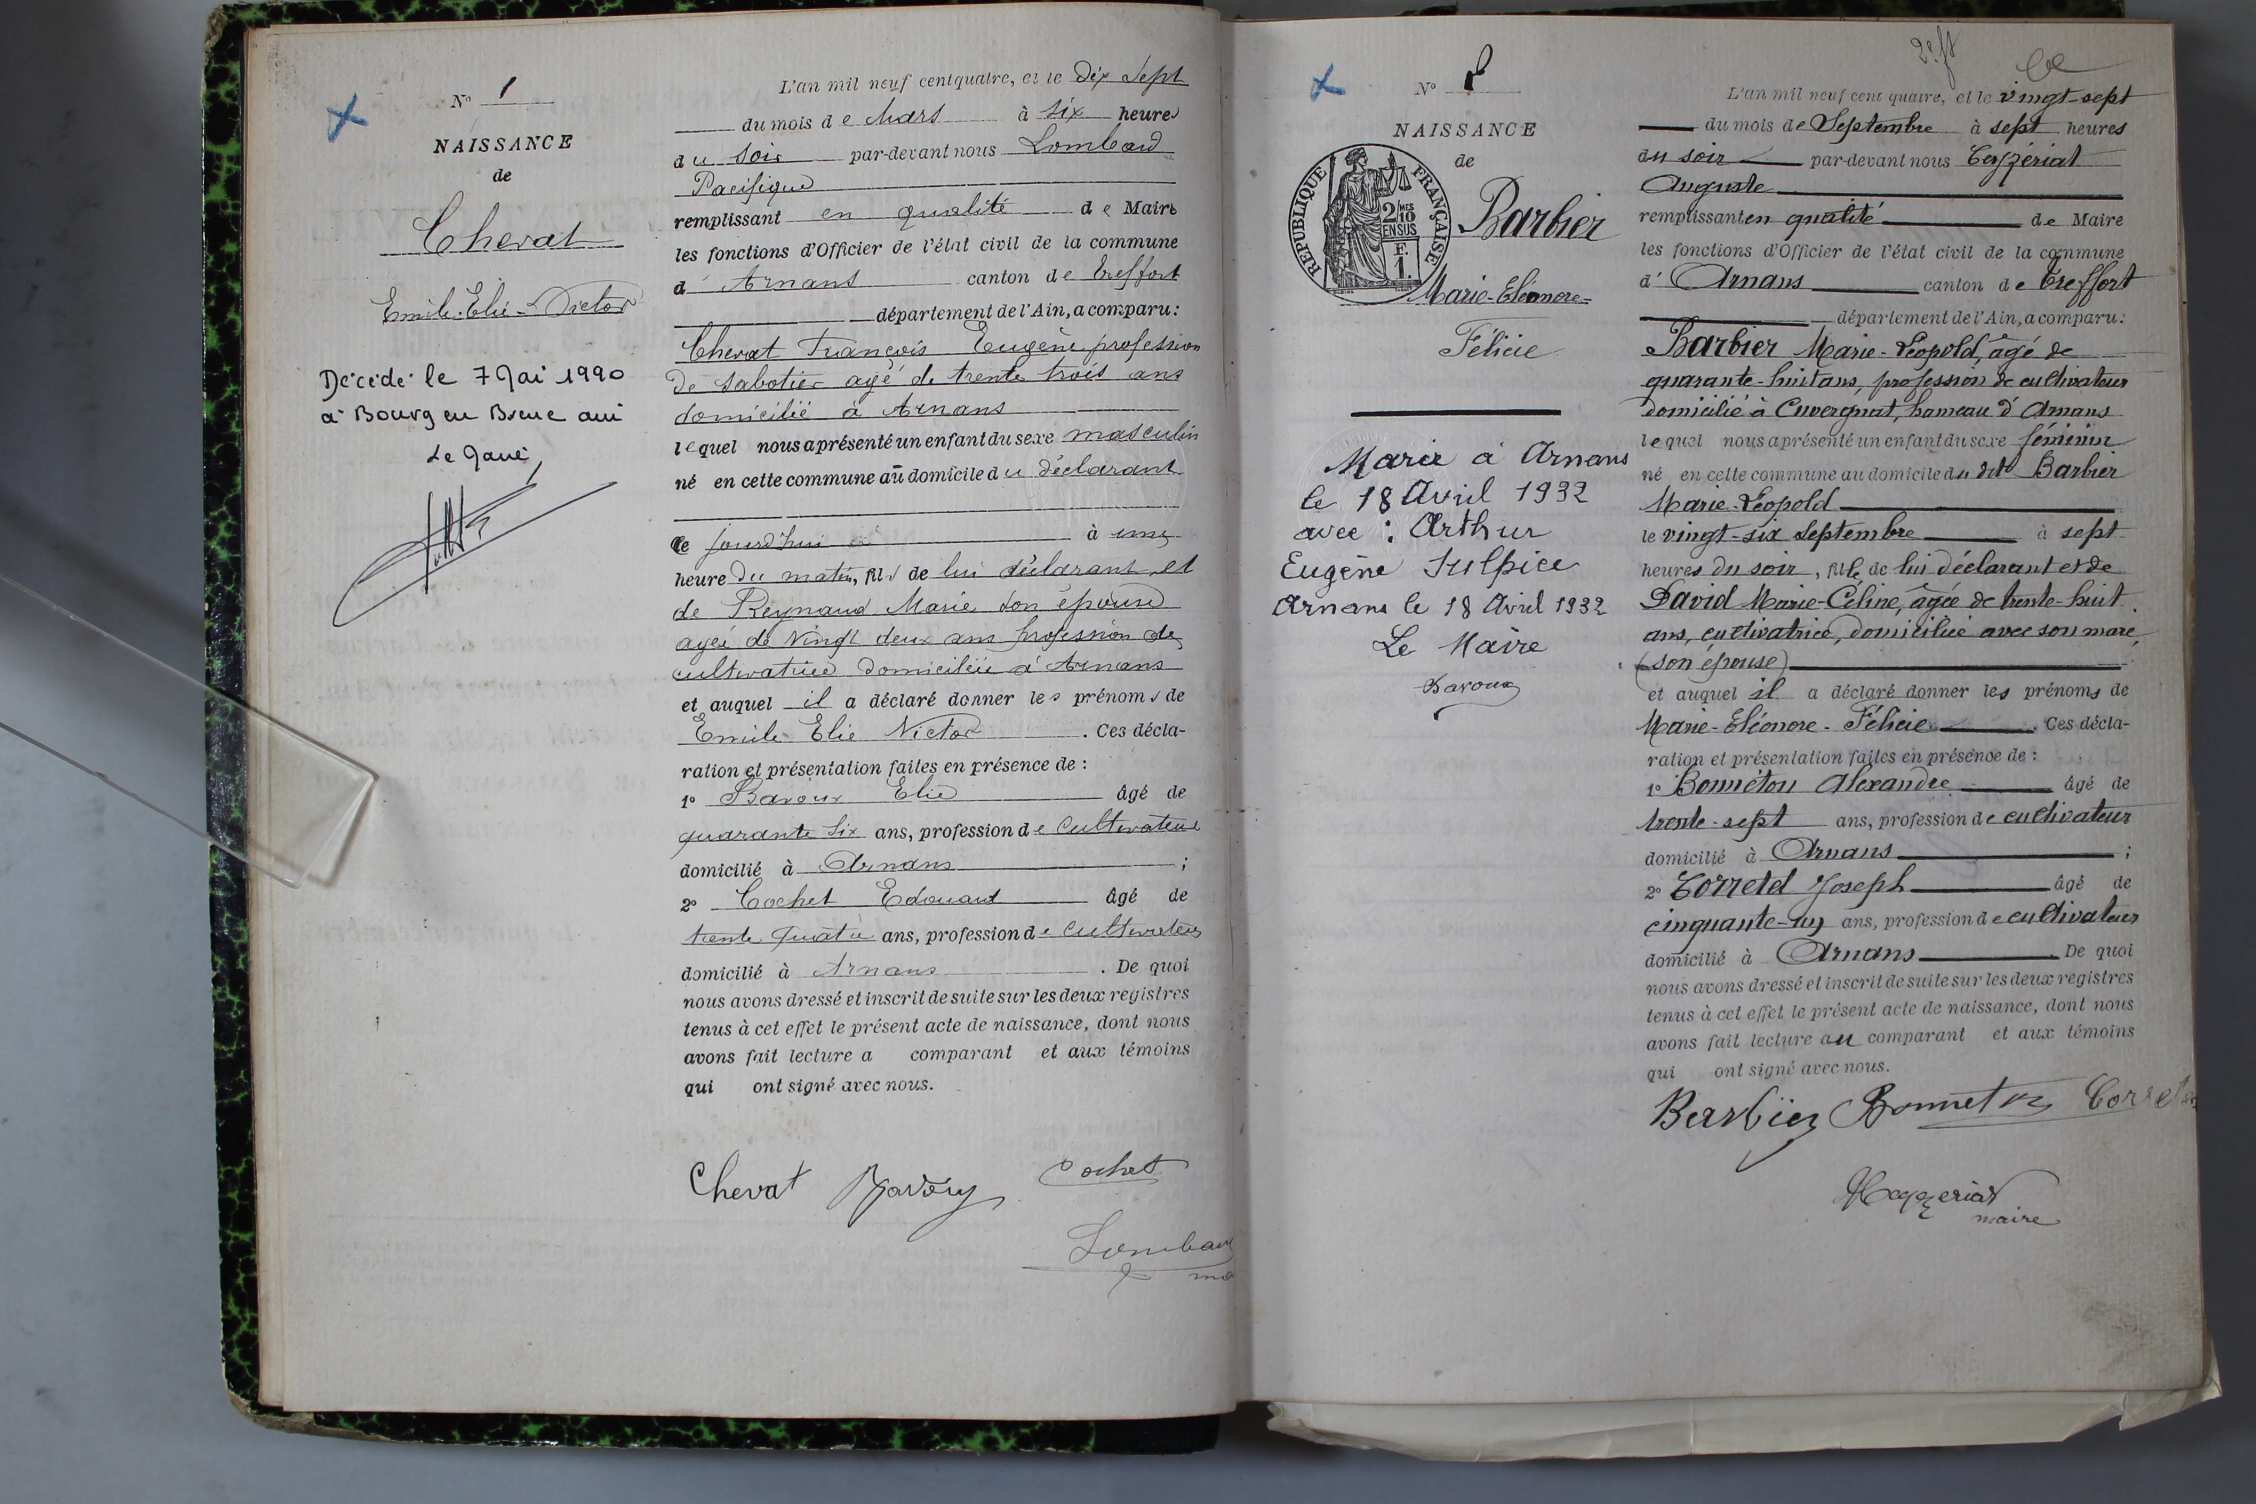 N° 1
NAISSANCE
de
Chevat
Emile-Elie-Victor
Décédé le 7 Mai 1990
à Bourg en Bresse ain
L'an mil neuf cent quatre, et le dix sept
du mois de Mars à six heures
du soir par-devant nous Lombard
Pacifique
remplissant en qualité de Maire
les fonctions d'Officier de l'état civil de la commune
d' Arnans canton de Treffort
département de l'Ain, a comparu:
Chevat François Eugène profession
de sabotier agé de trente trois ans
domicilié à Arnans
lequel nous a présenté un enfant du sexe masculin
né en cette commune au domicile du déclarant
ce jourd'hui à une
heure du matin, fils de lui déclarant et
de Reynaud Marie son épouse
agée de vingt deux ans profession de
cultivatrice domiciliée à Arnans
et auquel il a déclaré donner les prénoms de
Emile Elie Victor . Ces décla-
ration et présentation faites en présence de :
1° Bavoux Elie âgé de
quarante six ans, profession de cultivateur
domicilié à Arnans ;
2° Cochet Edouard âgé de
trente quatre ans, profession de cultivateur
domicilié à Arnans . De quoi
nous avons dressé et inscrit de suite sur les deux registres
tenus à cet effet le présent acte de naissance, dont nous
avons fait lecture a comparant et aux témoins
qui ont signé avec nous.
Chevat Bavoux Cochet
Lombard
N° 2
NAISSANCE
de
RÉPUBLIQUE FRANÇAISE
2/10 MES
EN SUS
F.
1.
Barbier
Marie-Eléonore-
Félicie
Mariée à Arnans
le 18 Avril 1932
avec : Arthur
Eugène Sulpice
Arnans le 18 Avril 1932
Le Maire
Bavoux
L'an mil neuf cent quatre, et le vingt-sept
du mois de Septembre à sept heures
du soir par-devant nous Ceyzériat
Auguste
remplissant en qualité de Maire
les fonctions d'Officier de l'état civil de la commune
d' Arnans canton de Treffort
département de l'Ain, a comparu:
Barbier Marie-Léopold, âgé de
quarante-huit ans, profession de cultivateur
domicilié à Cuvergnat, hameau d'Arnans
lequel nous a présenté un enfant du sexe féminin
né en cette commune au domicile du dit Barbier
Marie-Léopold
le vingt-six septembre à sept
heures du soir, fille de lui déclarant et de
David Marie-Céline, âgée de trente-huit
ans, cultivatrice, domiciliée avec son mari,
(son épouse)
et auquel il a déclaré donner les prénoms de
Marie-Eléonore-Félicie . Ces décla-
ration et présentation faites en présence de :
1° Bonnéton Alexandre âgé de
trente-sept ans, profession de cultivateur
domicilié à Arnans ;
2° Corretel Joseph âgé de
cinquante-un ans, profession de cultivateur
domicilié à Arnans De quoi
nous avons dressé et inscrit de suite sur les deux registres
tenus à cet effet le présent acte de naissance, dont nous
avons fait lecture au comparant et aux témoins
qui ont signé avec nous.
Barbier Bonneton
Ceyzeriat
maire